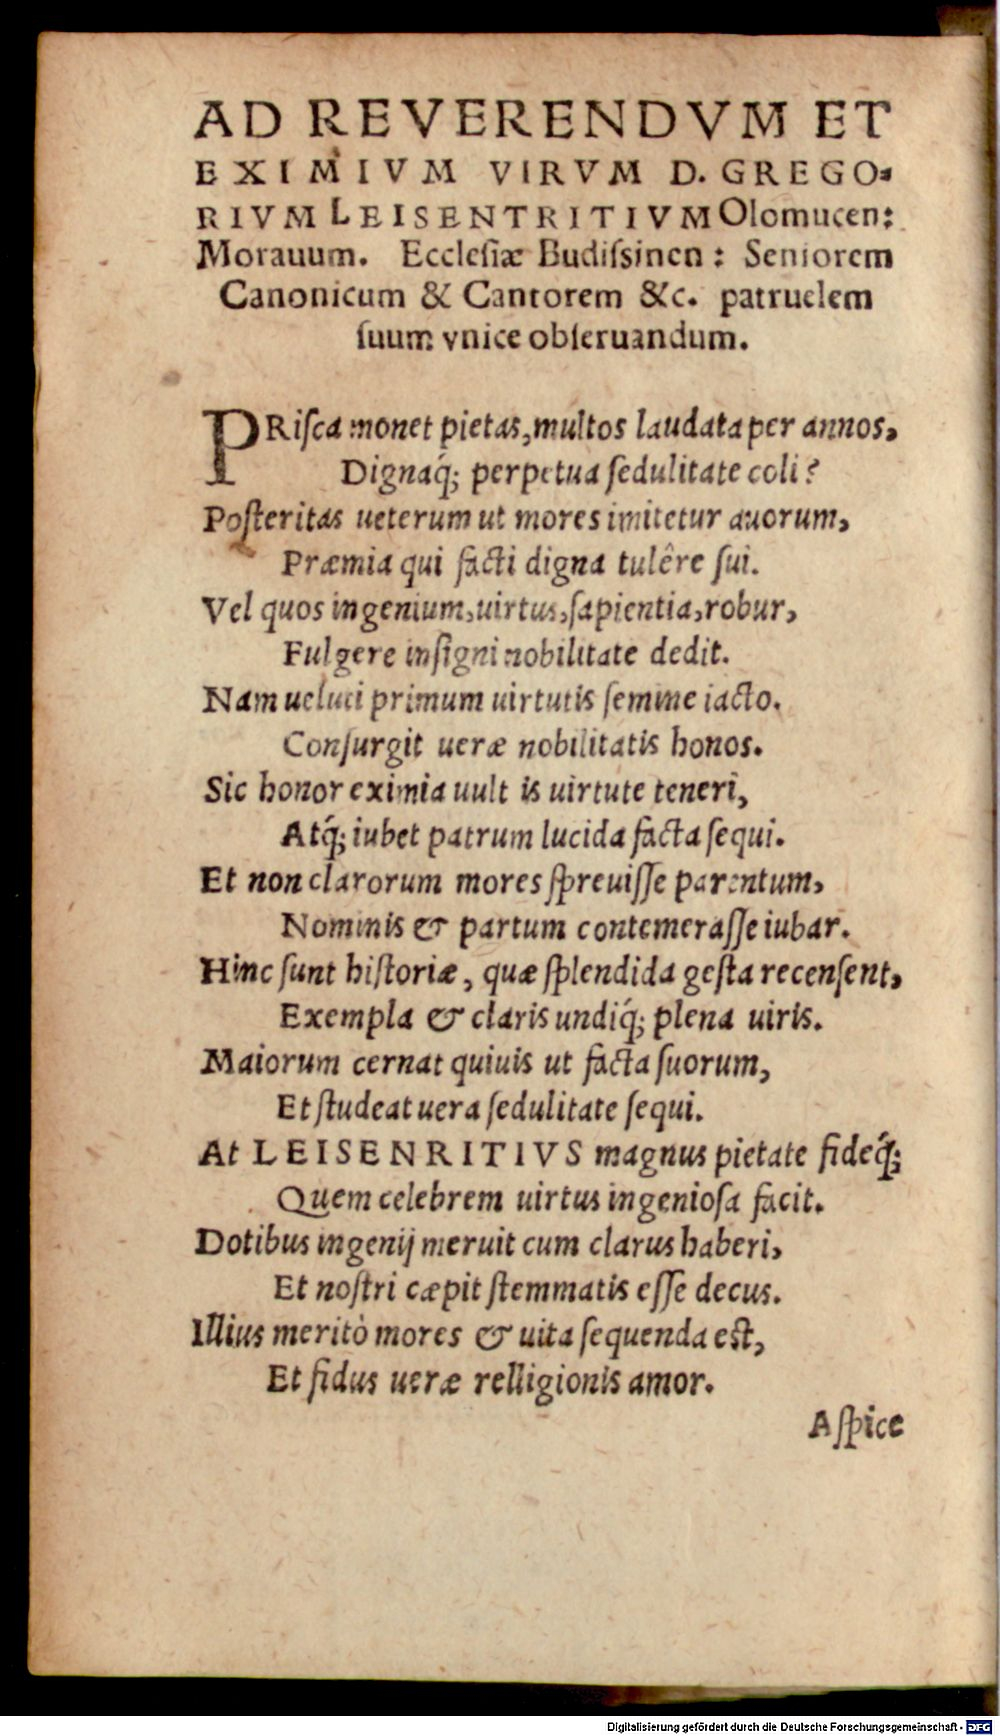 AD REVERENDVM ET
EXIMIVM VIRVM D. GREGO-
RIVM LEISENTRITIVM Olomucen:
Morauum. Ecclesiæ Budiſsinen: Seniorem
Canonicum & Cantorem &c. patruelem
ſuum vnice obſeruandum.
PRiſca monet pietas, multos laudata per annos,
Dignaq́; perpetua ſedulitate coli?
Poſteritas ueterum ut mores imitetur auorum,
Præmia qui facti digna tulêre ſui.
Vel quos ingenium, uirtus, ſapientia, robur,
Fulgere inſigni nobilitate dedit.
Nam ueluti primum uirtutis ſemine iacto.
Conſurgit ueræ nobilitatis honos.
Sic honor eximia uult is uirtute teneri,
Atq́; iubet patrum lucida facta ſequi.
Et non clarorum mores ſpreuiſſe parentum,
Nominis & partum contemeraſſe iubar.
Hinc ſunt hiſtoriæ, quæ ſplendida geſta recenſent,
Exempla & claris undiq́; plena uiris.
Maiorum cernat quiuis ut facta ſuorum,
Et ſtudeat uera ſedulitate ſequi.
At LEISENRITIVS magnus pietate fideq́;
Quem celebrem uirtus ingenioſa facit.
Dotibus ingenij meruit cum clarus haberi,
Et noſtri cæpit ſtemmatis eſſe decus.
Illius meritò mores & uita ſequenda eſt,
Et fidus ueræ relligionis amor.
Aſpice
Digitalisierung gefördert durch die Deutsche Forschungsgemeinschaft - DFG